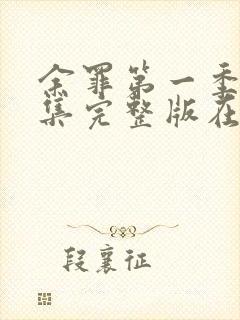 余罪第一季
集完整版在
段襄征